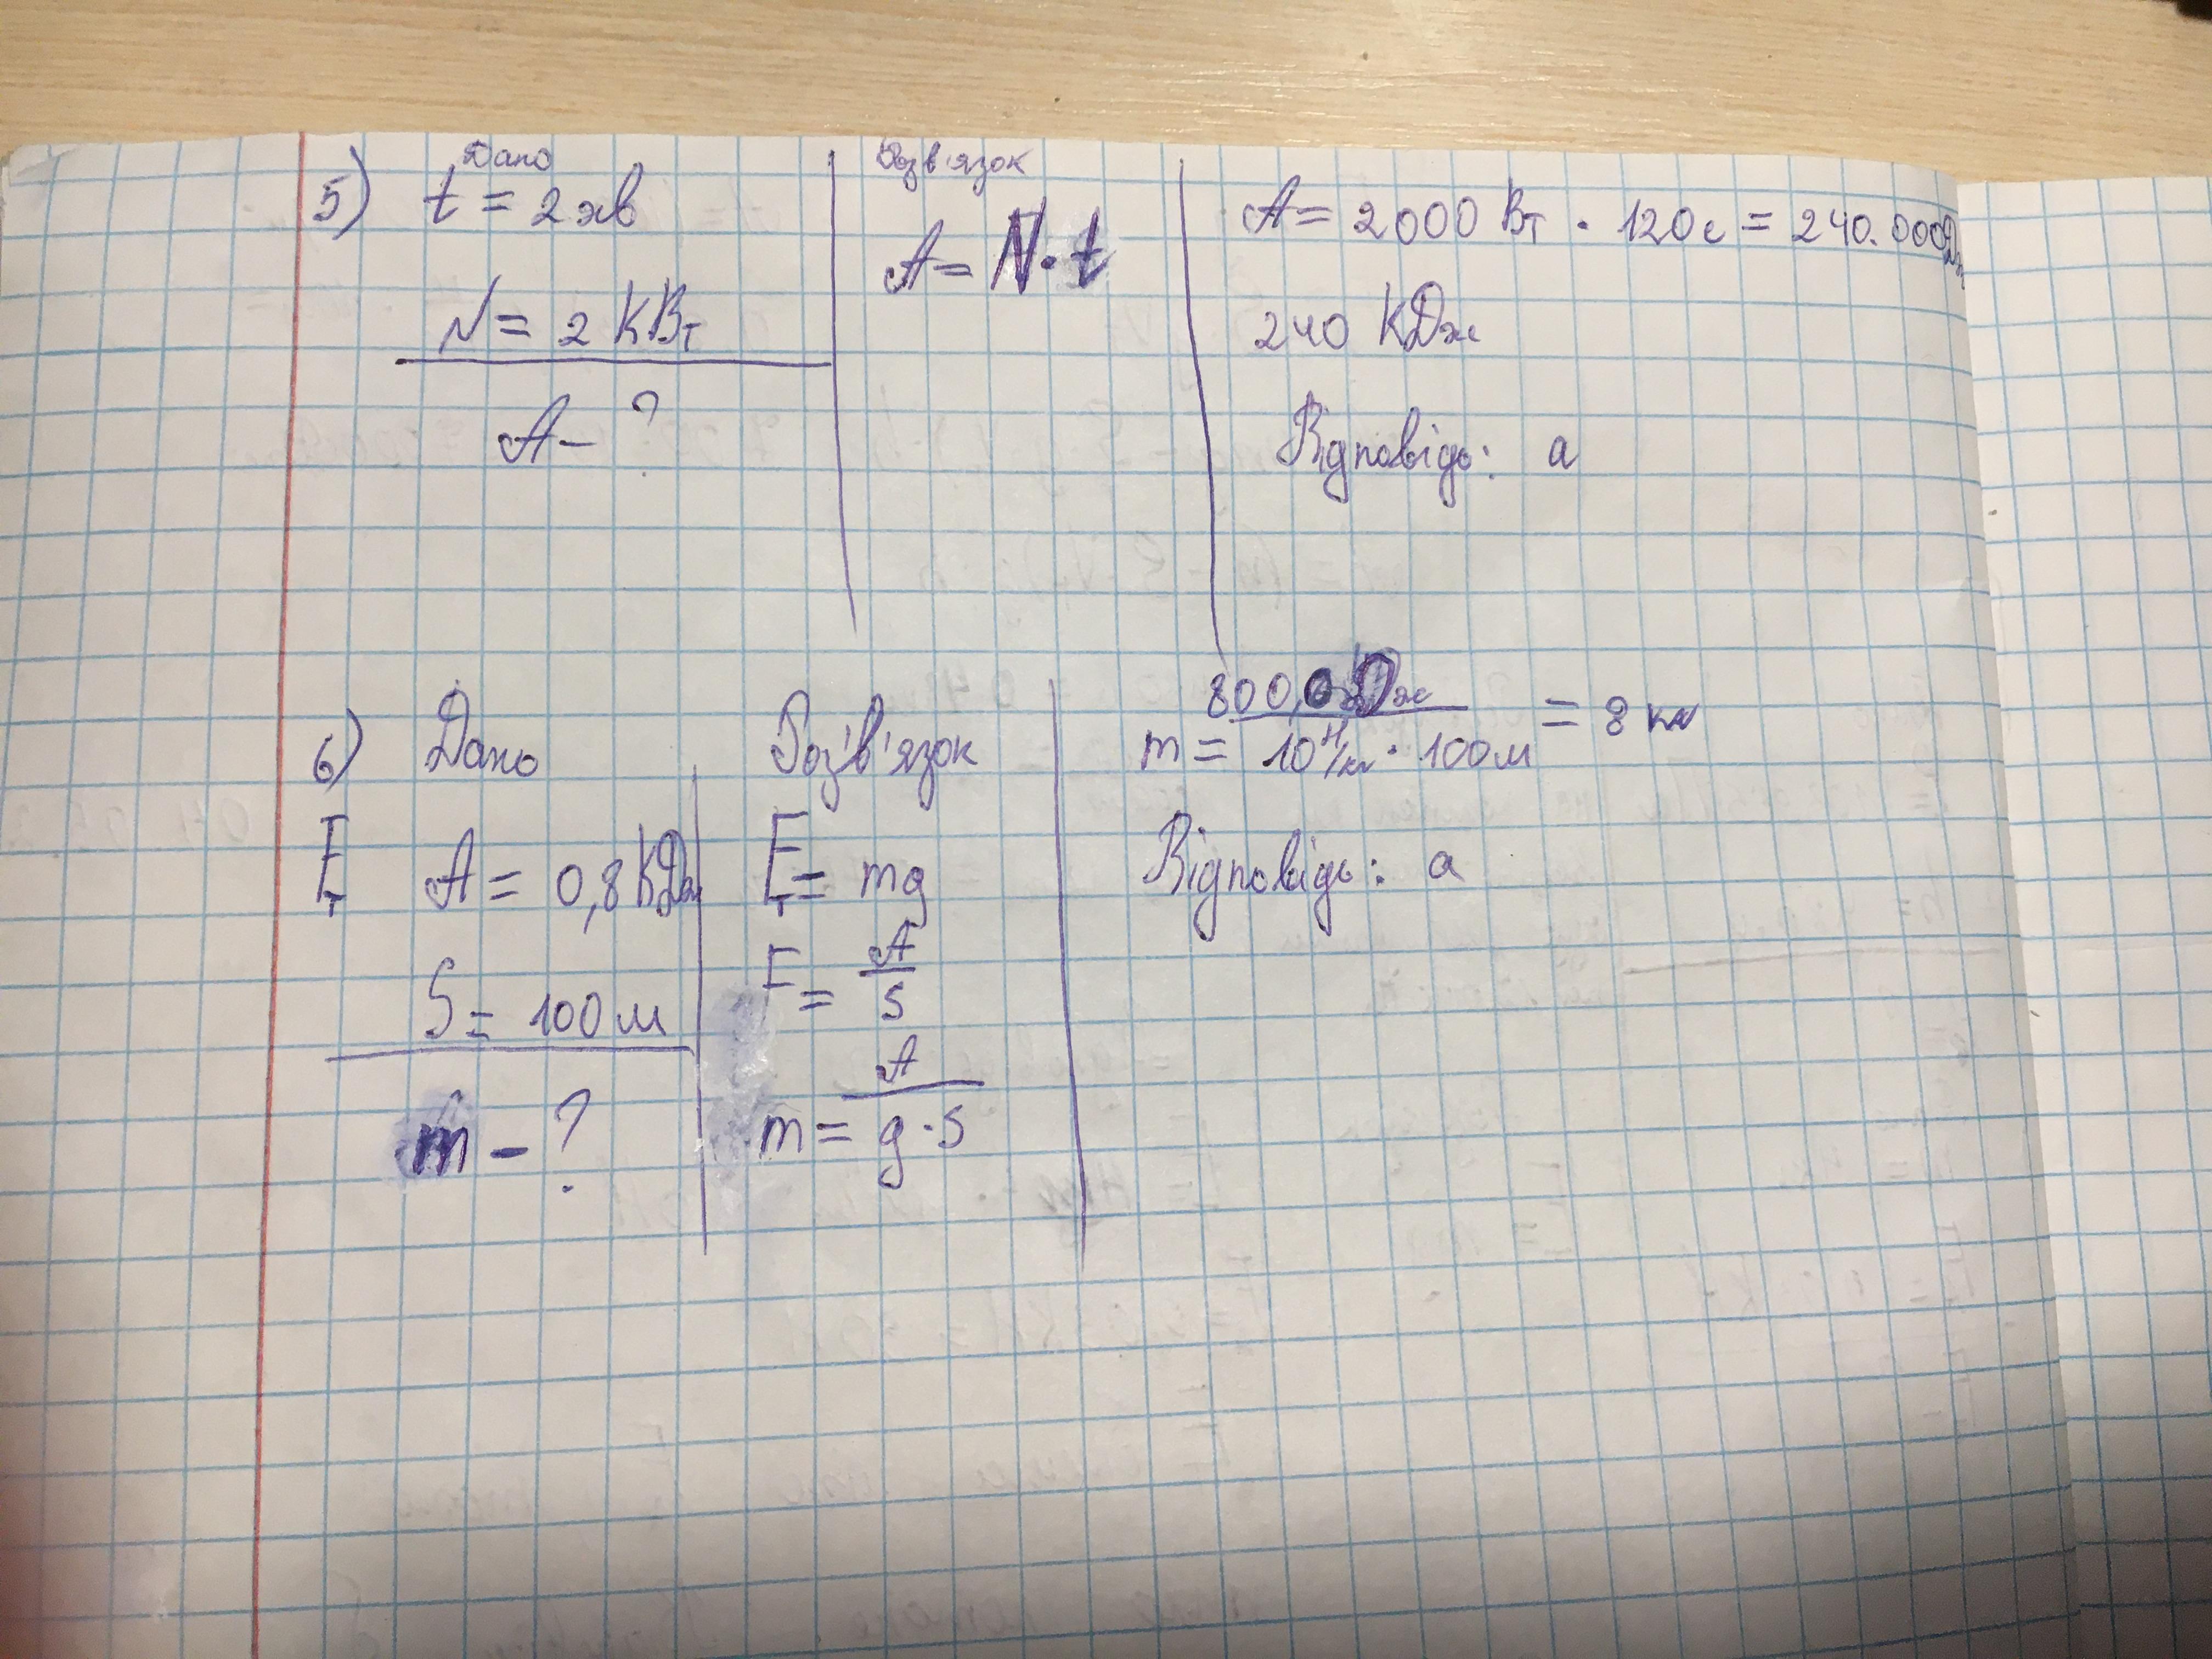 5) Дано
t = 2 хв
N = 2 КВт
A – ?
Розв'язок
A = N · t
A = 2000 Вт · 120 с = 240.000Дж
240 КДж
Відповідь: а
6) Дано
Fт A = 0,8 КДж
S = 100 м
m – ?
Роз'в'язок
Fт = mg
F = A/S
m = A/g·S
m = 800,0 Дж / 10 Н/кг · 100 м = 8 кг
Відповідь: а